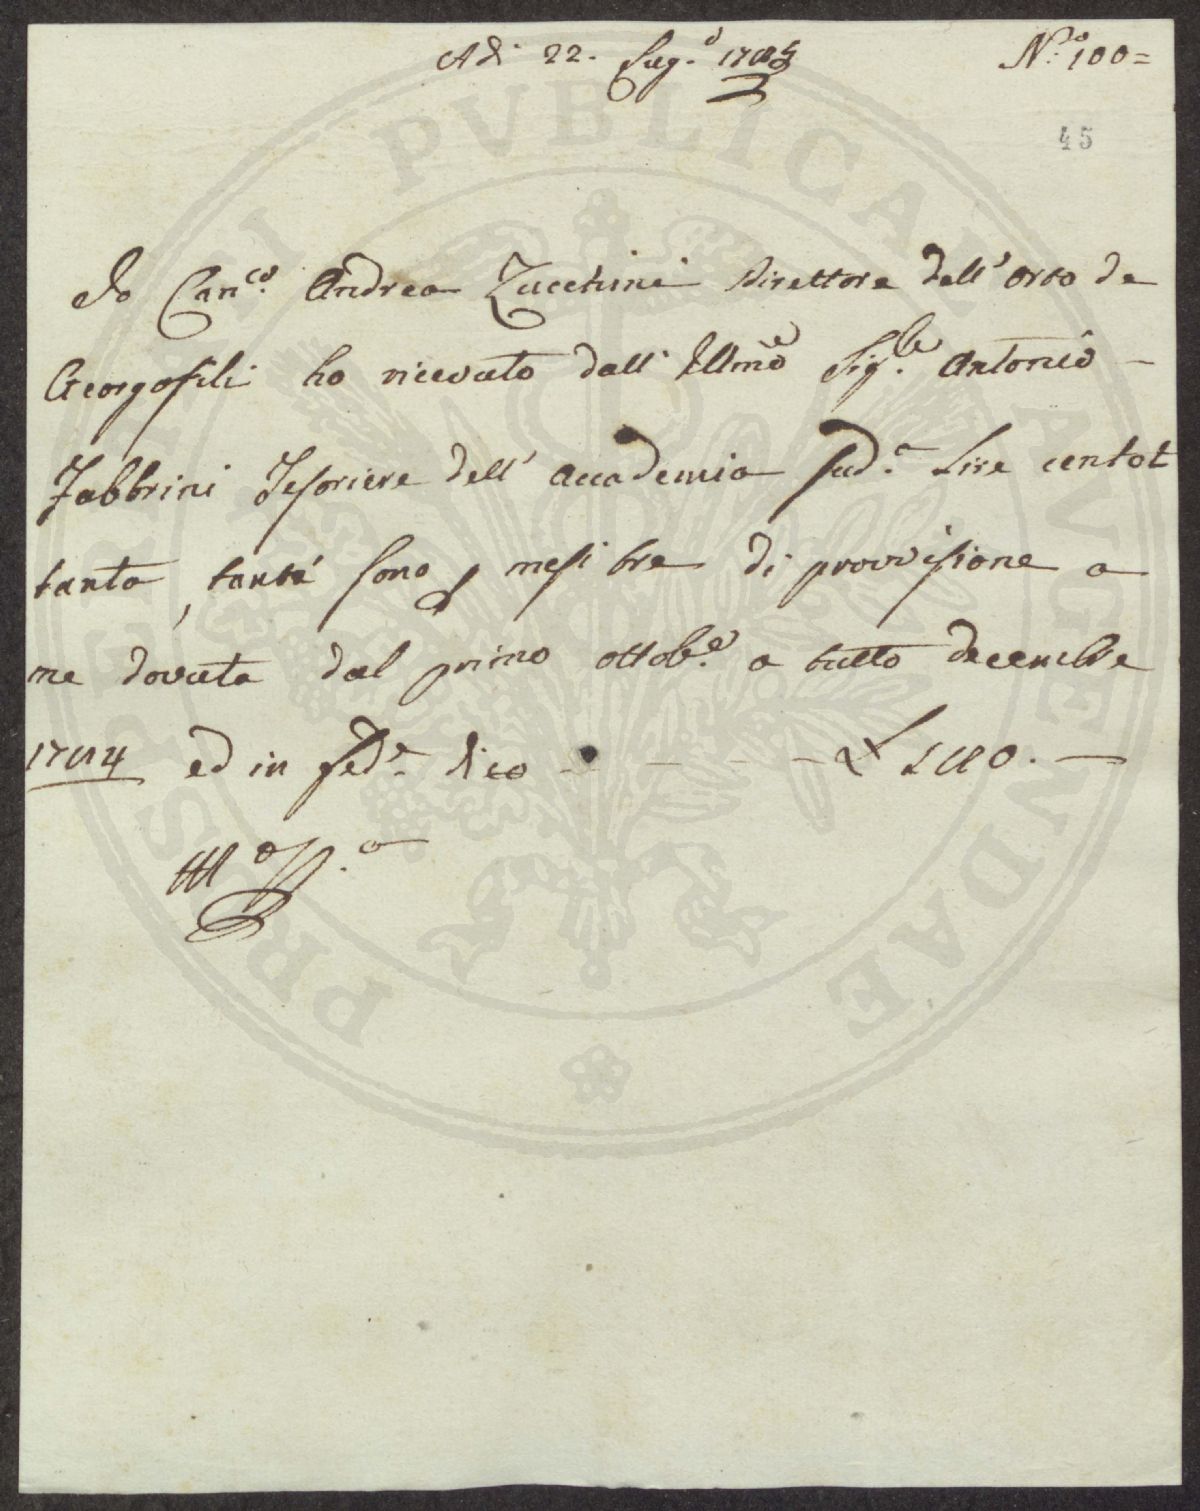 Adì 22. Lug.o 1785
N.o 100=
45
Io Can.co Andrea Zucchini Direttore dell' Orto de
Georgofili ho ricevuto dall' Illmo Sig.re Antonio -
Fabbrini Tesoriere dell' Accademia sud.a Lire centot
tanta, tante sono p mesi tre di provvisione a
me dovuta dal primo ottob.e a tutto decembre
1784 ed in fed.e dico - - - - - £ 180. -
M.o P.a
PROSPERITATI PVBLICAE AVGENDAE